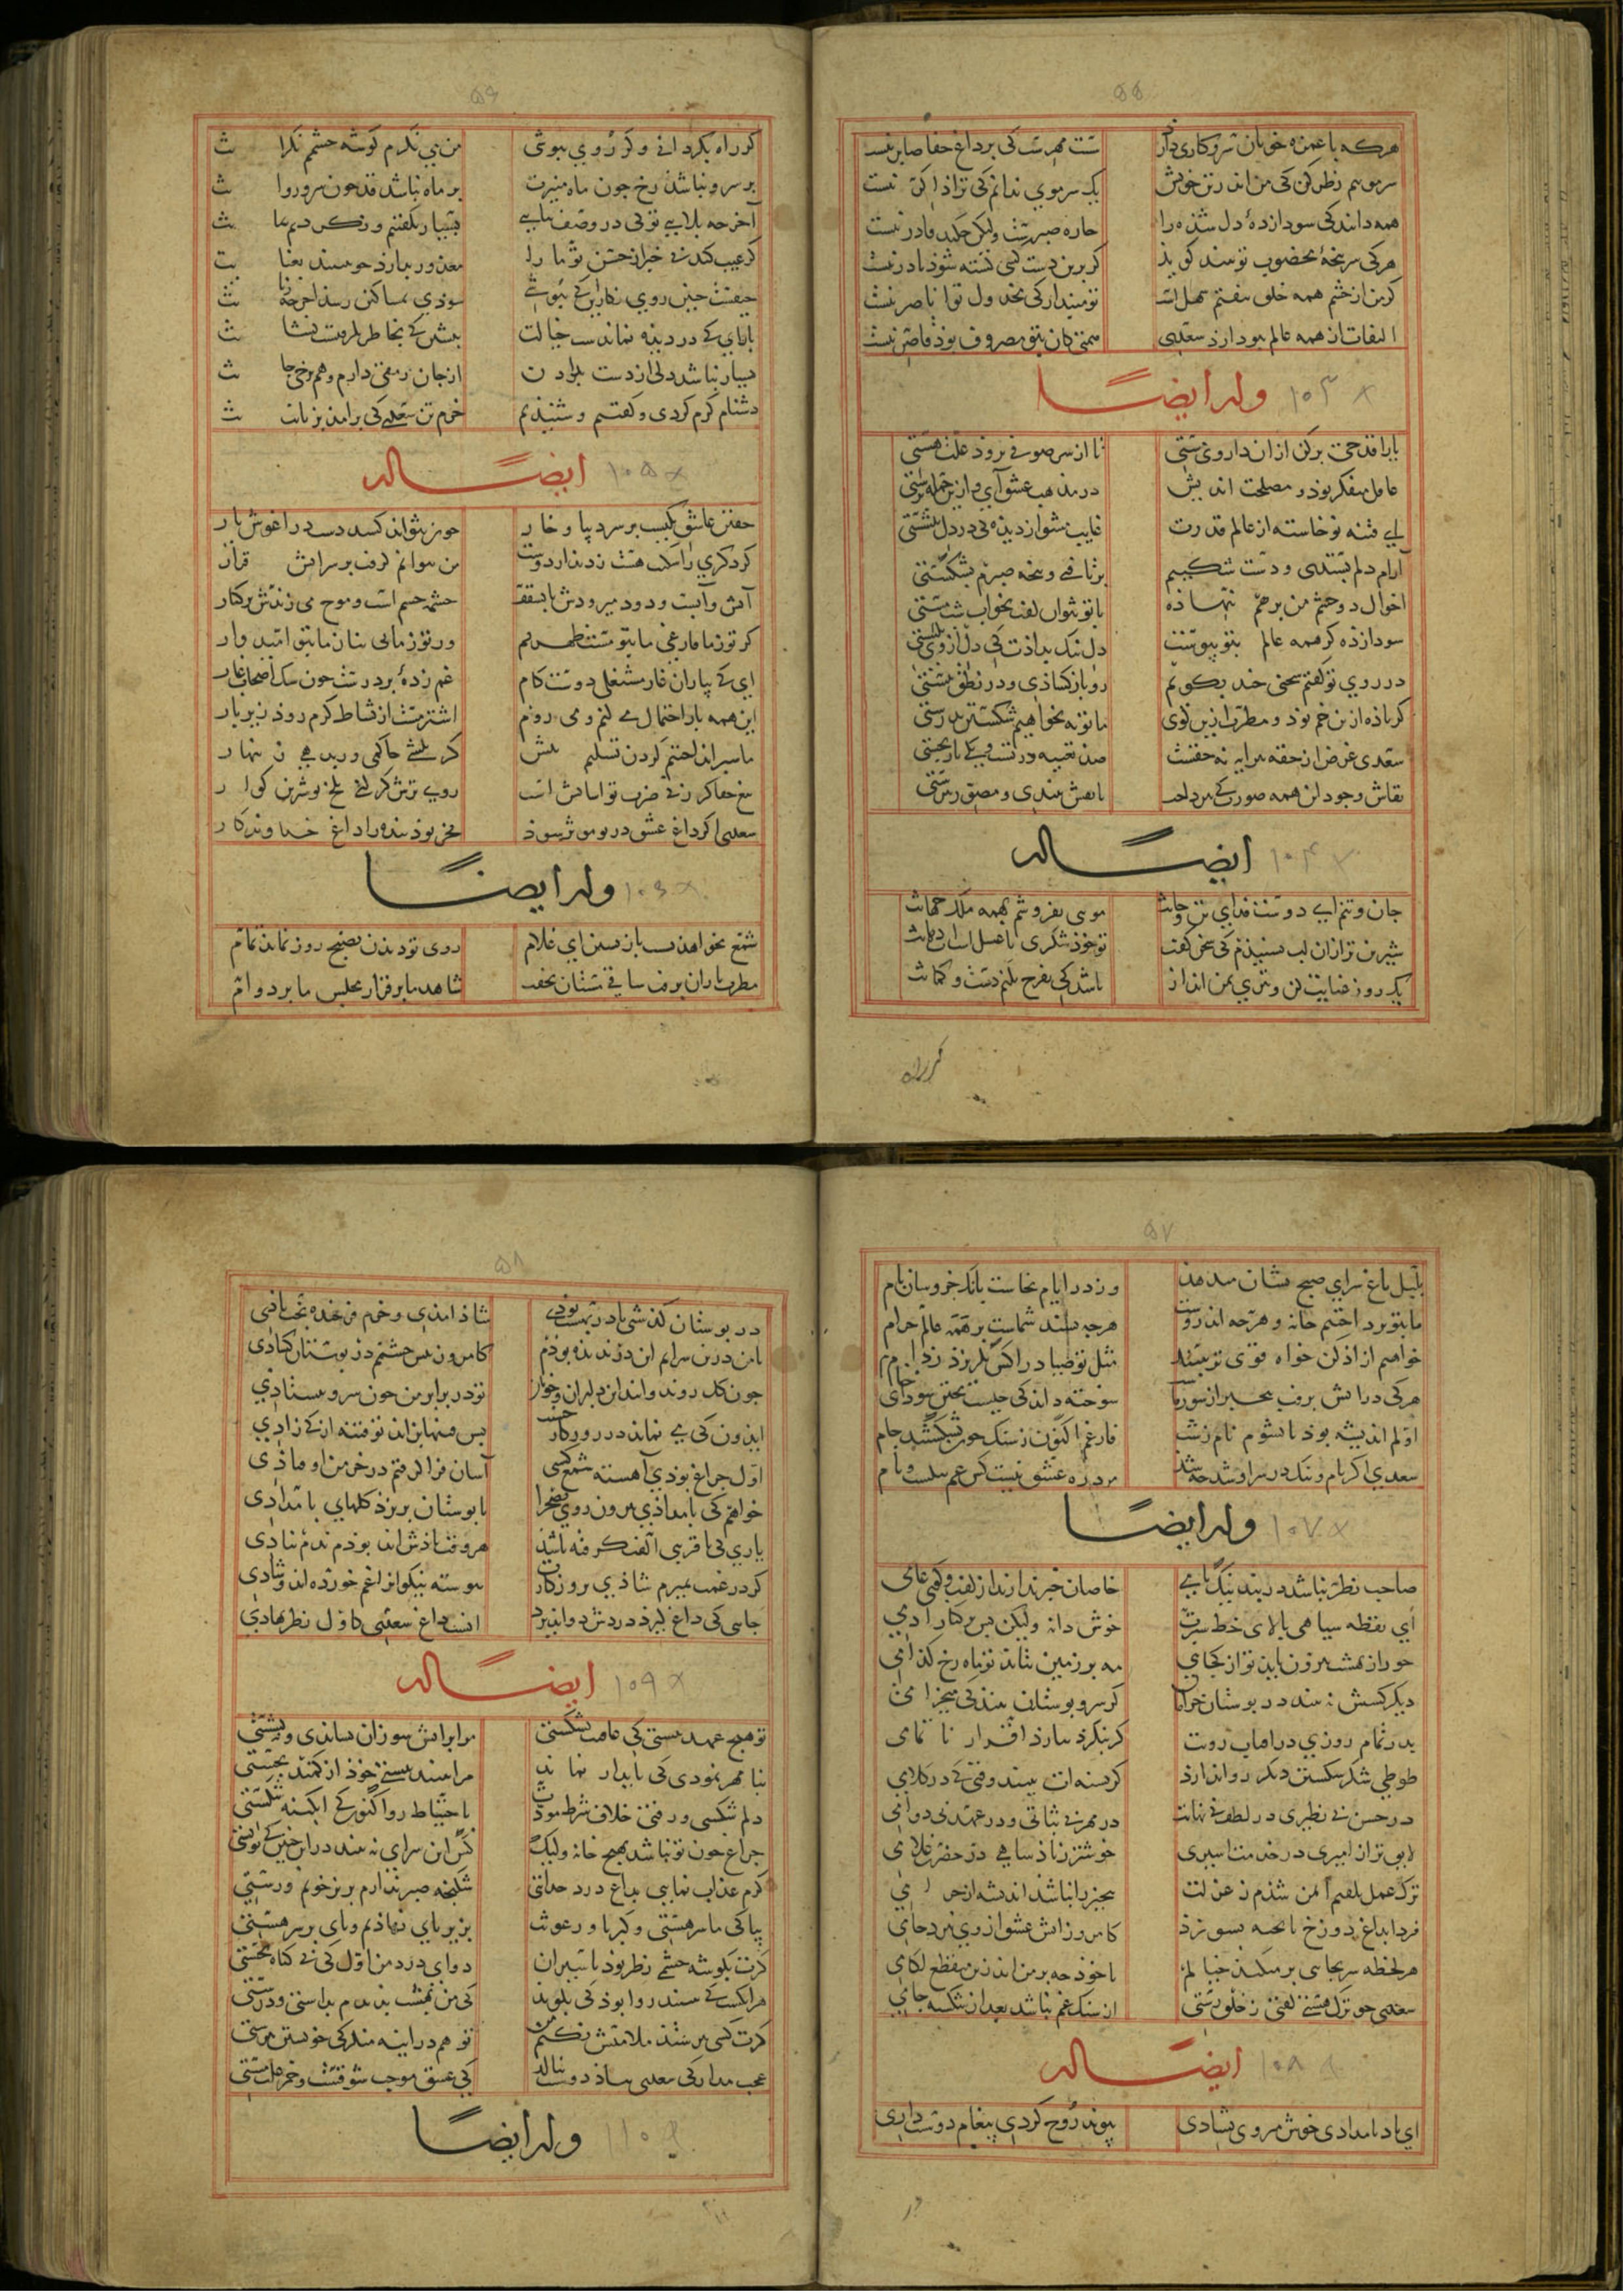 ۵۵
هرکه با غمزه خوبان سر و کاری دارد سست مهرست کی بر داغ جفا صابر نیست
سر مویم نظر کن کی من اندر تن خویش یک سر موی ندانم کی ترا ذاکر نیست
همه دانند کی سودازدهٔ دل شذه را چاره صبرست ولیکن چکند قادر نیست
هرکی سر پنجهٔ مخضوب تو بیند کوید کر برین دست کسی کشته شوذ نادر نیست
کر من از چشم همه خلق بیفتم سهل است تو مپندار کی مخذول ترا ناصر نیست
التفات از همه عالم بتو دارذ سعدی همتی کان بتو مصروف بوذ قاصر نیست
وله ایضًا ۱۰۳
یارا قدحی پر کن از ان داروی مستی تا از سر صوفی برود علت هستی
عاقل متفکر بود و مصلحت اندیش در مذهب عشق آی و ازین جمله برستی
ای فتنه نوخاسته از عالم قدرت غایب مشو از دیده کی در دل بنشستی
آرام دلم بستدی و دست شکیبم برتافتی و پنجه صبرم بشکستی
احوال دو چشم من بر هم ننهاذه با تو نتوان کفت بخواب شب مستی
سودازده کز همه عالم بتو پیوست دل نیک بداذت کی دل از وی بکسستی
در روی تو کفتم سخنی چند بکویم رو باز کشاذی و در نطق ببستی
کر باده از ین خم بوذ و مطرب ازین کوی ما توبه بخواهیم شکستن بدرستی
سعدی غرض از حقه نه حقست صد تعبیه در تست و یکی باز نجستی
نقاش وجود این همه صورت کی بپرداخت تا نقش ببینی و مصور بپرستی
ایضًا له ۱۰۴
جان و تنم ای دوست فدای تن و جانت مویی نفروشم بهمه ملک جهانت
شیرین تر ازان لب نشنیذم کی سخن کفت تو خوذ شکری یا عسل است
یک روز عنایت کن و تیری بمن انداز باشد کی تفرج بکنم دست و کمانت
کر راه
۵۶
کر راه بکردانی و کر روی بپوشی من می نکرم کوشه چشم نکرانت
بر سرو نباشد رخ چون ماه منیرت بر ماه نباشد قد چون سرو روانت
آخر چه بلایی تو کی در وصف نیایی بسیار بکفتیم و نکردیم بیانت
کر عیب کند بی خبر از حسن تو ما را معذور بدارذ چو ببیند بعیانت
حیفست چنین روی نکارین کی بپوشی سوذی بمساکین رسذ آخر چه زیانت
بازآی کی در دیده نماندست خیالت بنشین کی بخاطر بکرفتست نشانت
بسیار نباشد دلی از دست بدادن از جان رمقی دارم و هم برخی جانت
دشنام کرم کردی و کفتی و شنیدم خرم تن سعدی کی برآمد بزبانت
ایضًا له ۱۰۵
خفتن عاشق یکیست بر سر دیبا و خار چون نتواند کشید دست در آغوش یار
کر دکری را شکیب هست ز دیدار دوست من نتوانم کرفت بر سر آتش قرار
آتش و آبست و دود میرود ش تا بسقف چشمه چشم است و موج می زندش بر کنار
کر تو ز ما فارغی ما بتو مستظهریم ور تو ز ما بی نیاز ما بتو امیدوار
ای کی بیاران غار مشتغلی دوستکام غم زدهٔ بر درست چون سک اصحاب غار
این همه بار احتمال می کنم و می روم اشتر مست از نشاط کرم روذ زیر بار
ما سپر انداختیم کردن تسلیم پیش کر بکشی حاکمی ور بدهی زینهار
تیغ جفا کر زنی ضرب تو آسایش است روی ترش کر کنی تلخ تو شیرین کوار
سعدی اکر داغ عشق در تو مؤثر شوذ فخر بوذ بنده را داغ خداوندکار
وله ایضًا ۱۰۶
شمع بخواهد نشست باز نشین ای غلام روی تو دیدن بصبح روز نماید تمام
مطرب یاران برفت ساقی مستان بخفت شاهد ما برقرار مجلس ما بر دوام
۵۷
بلبل باغ سرای صبح نشان می دهد وز در ایام بخاست بانک خروسان بام
ما بتو پرداختیم خانه و هرچه اندروست هرچه پسند شماست بر همه عالم حرام
خواهیم آزاد کن خواه قوی تر ببند مثل تو صیاد را کس نکریزد ز دام
هرکی در آتش نرفت بی خبر از سوز ماست سوخته داند کی چیست پختن سودای خام
اولم اندیشه بود تا نشوم نام زشت فارغم اکنون ز سنک چون بشکستند جام
سعدی اکر نام و ننک در سر او شد چه شد مرد ره عشق نیست کش غم ننکست و نام
وله ایضًا ۱۰۷
صاحب نظر نباشد در بند نیک نامی خاصان خبر ندارند از کفت و کوی عامی
ای نقطه سیاهی بالای خط سبزت خوش دانه ولیکن بس بر کنار دامی
حور از بهشت بیرون ناید تو از کجایی مه بر زمین نتابد تو ماه رخ کدامی
دیکر کسش نبیند در بوستان خرامان کر سرو بوستانت بیند کی می خرامی
بدر تمام روزی در آفتاب رویت کر بنکرد بیارذ اقرار ناتمامی
طوطی شکر شکستن دیکر روا ندارذ کر پسته ات ببیند وقتی کی در کلامی
در حسن بی نظیری در لطف بی نهایت در مهر بی ثباتی و در عهد بی دوامی
لایق تر از امیری در خدمتت اسیری خوشتر ز پادشاهی در حضرتت غلامی
ترک عمل بکفتم ایمن شذم ز عزلت بی چیز را نباشد اندیشه از حرامی
فردا بداغ دوزخ ناپخته بسوزذ کامروز آتش عشق از وی نبرد خامی
هر لحظه سر بجایی بر میکند خیالم تا خوذ چه بر من آید زین منقطع لکامی
سعدی چو ترک هستی کفتی ز خلق رستی از سنک غم نباشد بعد از شکسته جامی
ایضًا له ۱۰۸
ای باد بامدادی خوش می روی بشادی پیوند روح کردی پیغام دوست دادی
در
۵۸
در بوستان کذشتی یا در بهشت بودی شاذ آمدی و خرم فرخنده بخت بادی
تا من درین سرایم این در ندیده بوذم کامروز پیش چشمم در بوستان کشادی
چون کل روند و آیند این دلبران و خوبان تو در برابر من چون سرو ایستادی
ایذون کی می نماید در روزکار حسنت بس فتنها بزاید تو فتنه از کی زادی
اول چراغ بودی آهسته شمع کشتی آسان فرا کرفتم در خرمن اوفتاذی
خواهم کی بامداذی بیرون روی بصحرا تا بوستان بریزد کلهای بامدادی
یاری کی با قرینی الفت کرفته باشد هر وقت یاذش آید تو دم بدم بیادی
کر در غمت بمیرم شادی بروزکارت پیوسته نیکوان را غم خورده اند و شادی
جایی کی داغ کیرد دردش دوا پذیرد آنست داغ سعدی کاول نظر نهادی
ایضًا له ۱۰۹
تو هیچ عهد نبستی کی عاقبت نشکستی مرا بر آتش سوزان نشاندی و ننشستی
بنای مهر نمودی کی پایدار نماند مرا ببند ببستی خوذ از کمند بجستی
دلم شکستی و رفتی خلاف شرط مودت باحتیاط رو اکنون کی آبکینه شکستی
چراغ چون تو نباشد بهیچ خانه ولیکن کس این سرای نه بیند در این چنین کی تو بستی
کرم عذاب نمایی بداغ و درد جدایی شکنجه صبر ندارم بریز خونم و رستی
بیا کی ما سر هستی و کبریا و رعونت بزیر پای نهاذیم و پای بر سر هستی
کرت بکوشه چشمی نظر بوذ باسیران دوای درد من اول کی بی کناه بخستی
هر آنکست کی ببیند روا بوذ کی بکوید کی من بهشت بدیدم براستی و درستی
کرت کسی بپرستد ملامتش نکنم من تو هم در آینه بنکر کی خویشتن بپرستی
عجب مدار کی سعدی بیاد دوست بنالد کی عشق موجب شوقست و خمر علت مستی
وله ایضًا ۱۱۰